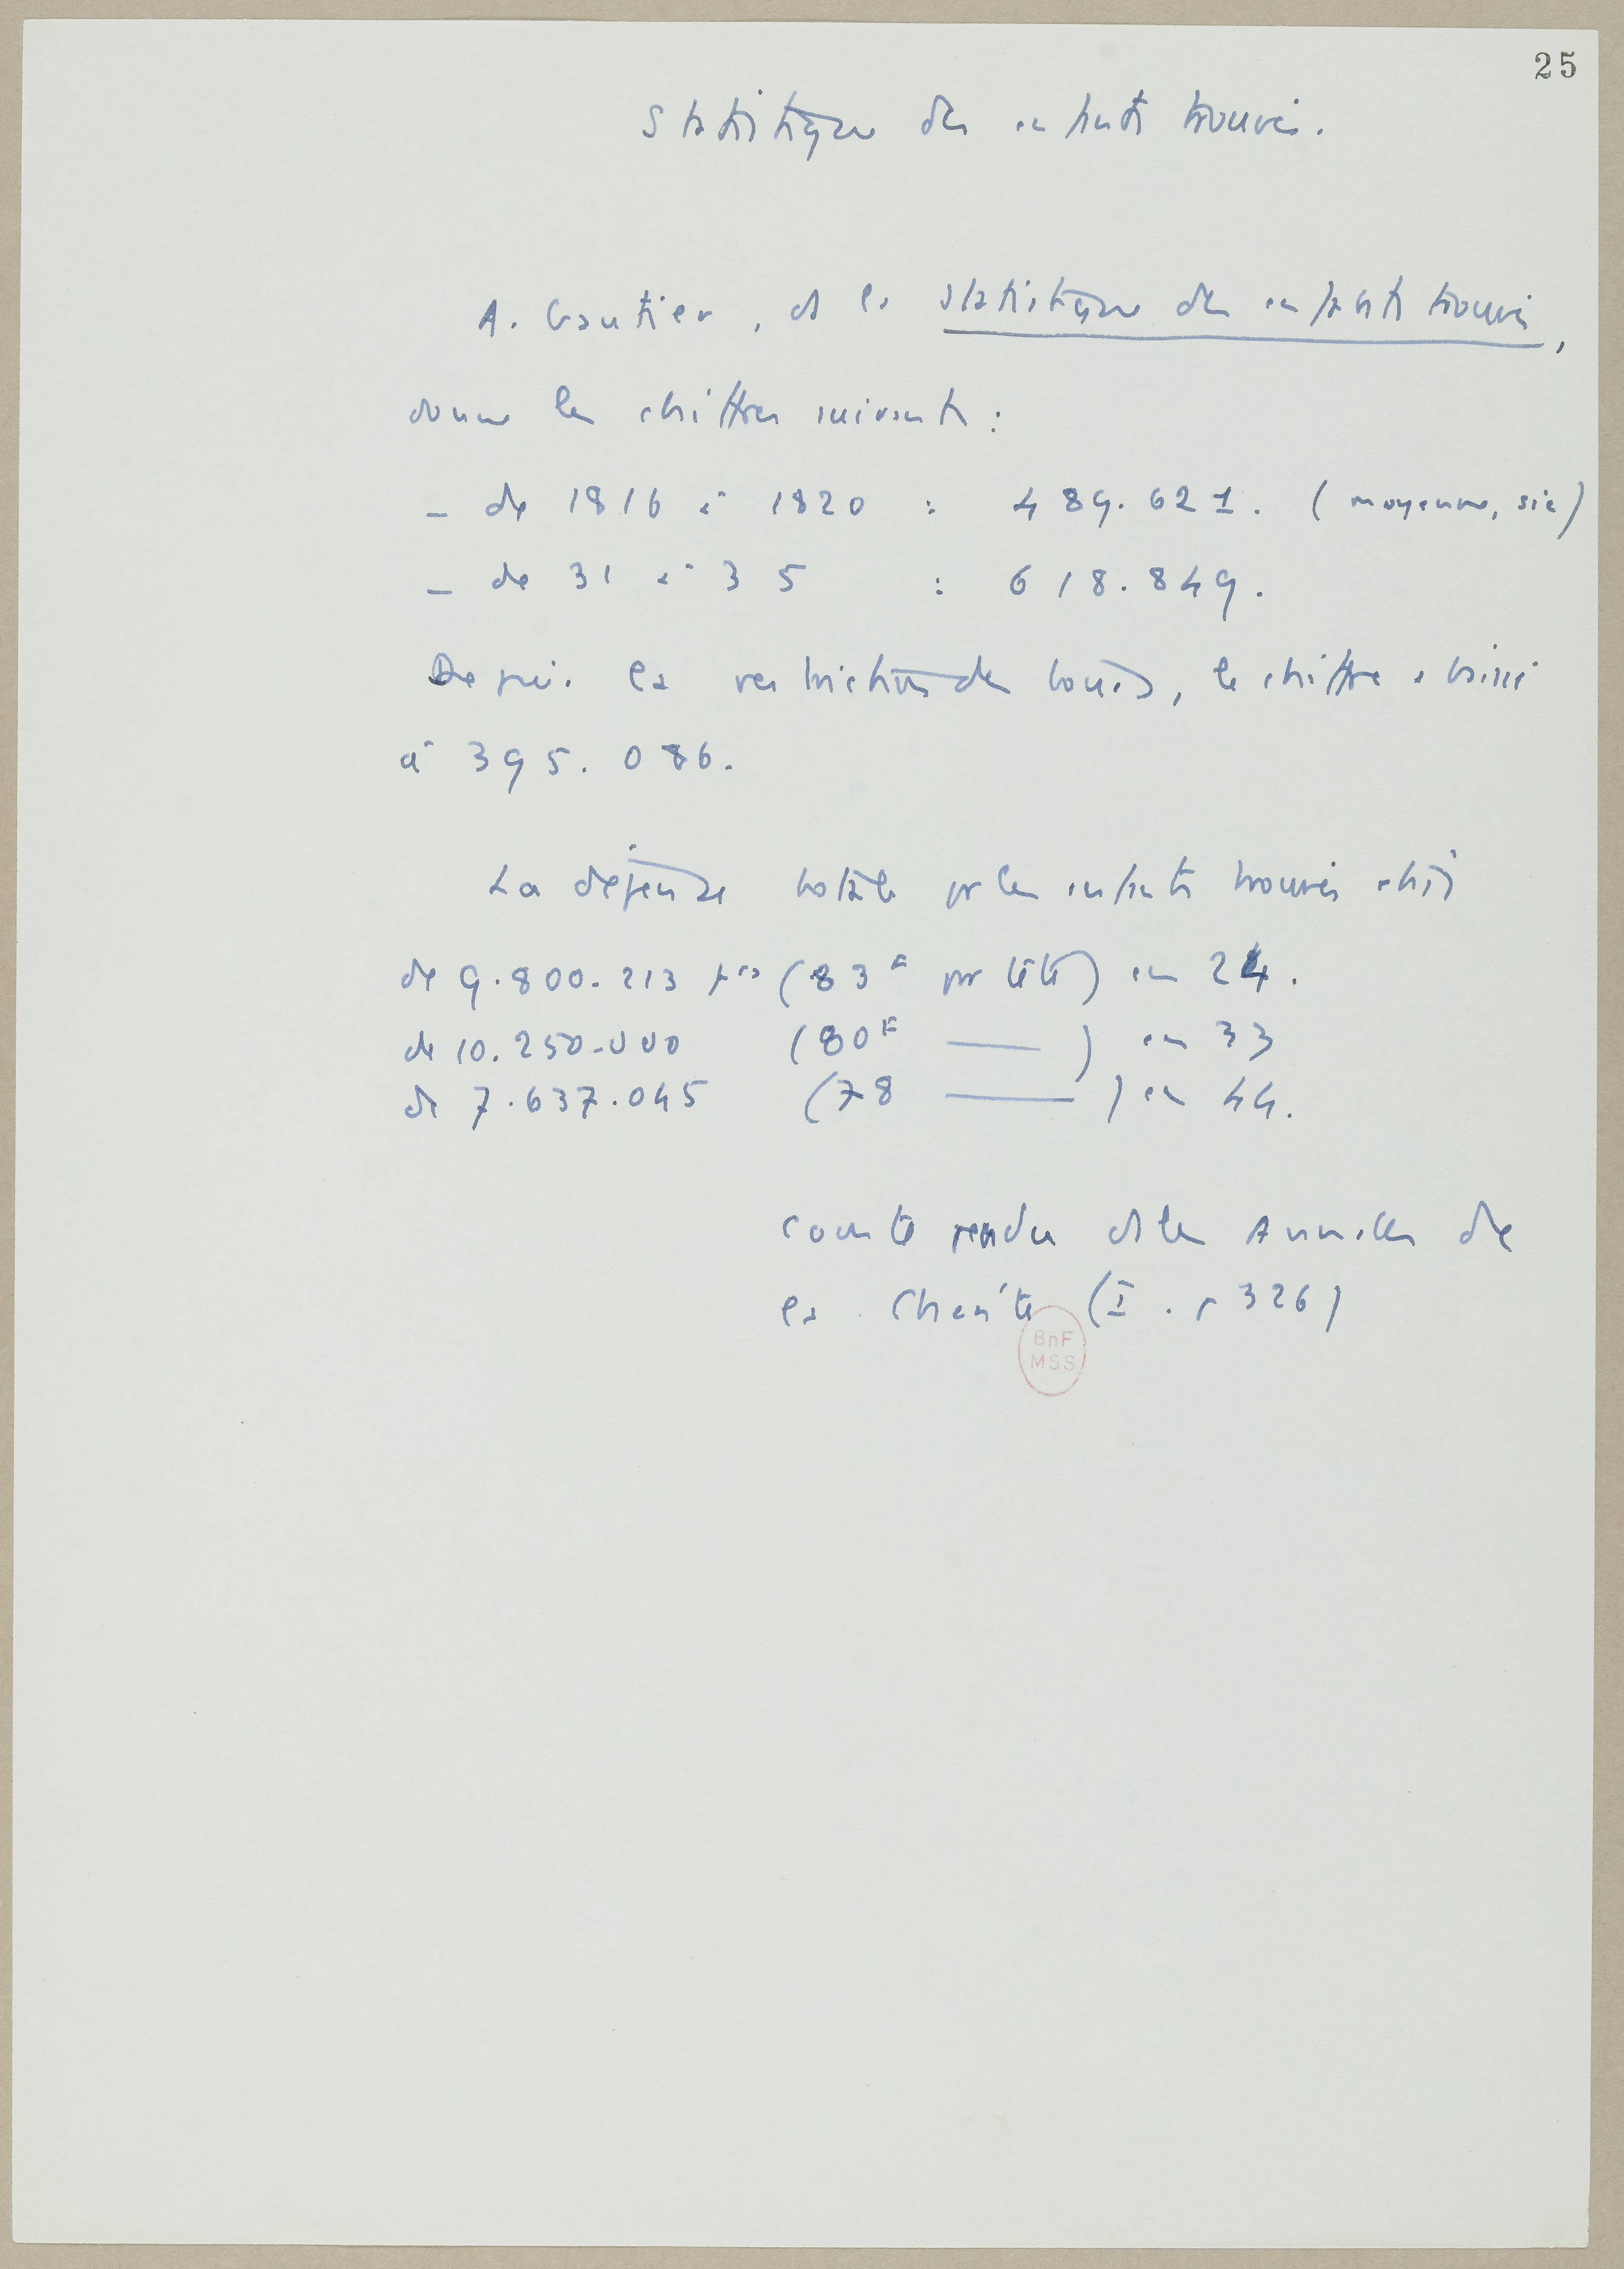 25
Statistique des enfants trouvés.
A. Gautier, ds la Statistique des enfants trouvés,
donne les chiffres suivants :
– de 1816 à 1820 : 489.621. (moyenne, sic)
– de 31 à 35 : 618.849.
Depuis la restriction des tours, le chiffre a baissé
à 395.086.
La dépense totale pr les enfants trouvés était
de 9.800.213 frcs (83F par tête) en 24.
de 10.250.000 (80F —— ) en 33
de 7.637.045 (78 —— ) en 44.
compte rendu ds les Annales de
la Charité (I. p 326)
BnF
MSS